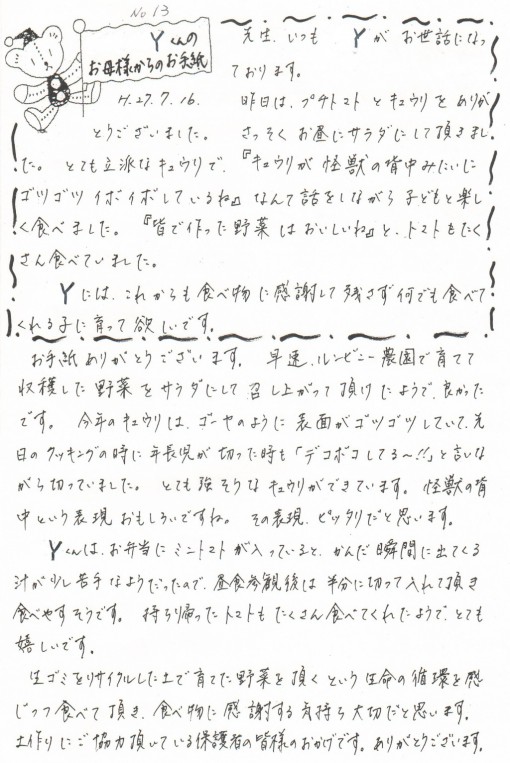 No 13
Yくんの
お母様からのお手紙
先生、いつも Yが お世話になっ
ております。
H.27.7.16.
昨日は、プチトマトとキュウリを ありが
とうございました。 さっそく お昼にサラダにして頂きまし
た。 とても立派なキュウリで、『キュウリが 怪獣の背中みたいに
ゴツゴツ イボイボしているね』なんて話をしながら 子どもと楽し
く食べました。『皆で作った野菜はおいしいね』と、トマトもたく
さん食べていました。
Yには、これからも食べ物に感謝して残さず何でも食べて
くれる子に育って欲しいです。
お手紙ありがとうございます。 早速、ルンビニー農園で育てて
収穫した野菜をサラダにして召し上がって頂けたようで、良かった
です。 今年のキュウリは、ゴーヤのように表面がゴツゴツしていて、先
日のクッキングの時に年長児が切った時も「デコボコしてる〜!!」と言いな
がら切っていました。 とても強そうなキュウリができています。 怪獣の背
中という表現、おもしろいですね。 その表現、ピッタリだと思います。
Yくんは、お弁当にミニトマトが入っていると、かんだ瞬間に出てくる
汁が少し苦手なようだったので、昼食参観後は半分に切って入れて頂き
食べやすそうです。 持ち帰ったトマトもたくさん食べてくれたようで、とても
嬉しいです。
生ゴミをリサイクルした土で育てた野菜を頂くという生命の循環を感
じつつ食べて頂き、食べ物に感謝する気持ち大切だと思います。
土作りにご協力頂いている保護者の皆様のおかげです。ありがとうございます。